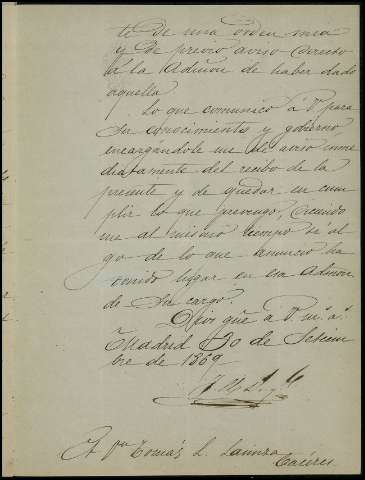 te de una orden mia
y de previo aviso
á la Admon de haber dado
aquella
Lo que comunico á V. para
su conocimiento y gobierno,
encargándole me dé aviso inme
diatamente del recibo de la
presente y de quedar en cum
plir lo que prevengo,
me al mismo tiempo si al
go de lo que anuncio ha
tenido lugar en esa Admon
de su cargo.
Dios gue á V. ms. as.
Madrid 30 de Setiem
bre de 1869
Tomás L.
Cáceres